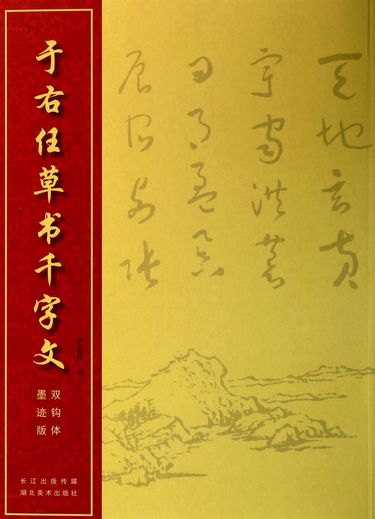 于右任草书千字文
双钩体
墨迹版
长江出版传媒
湖北美术出版社
天地玄黄
宇宙洪荒
日月盈昃
辰宿列张